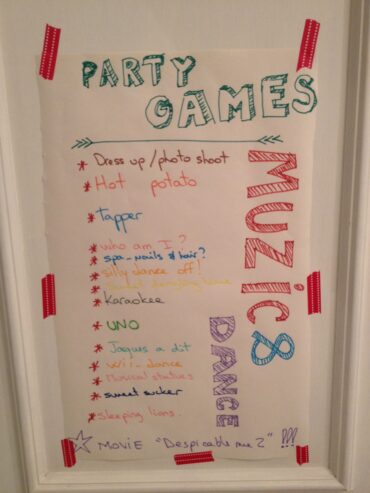 PARTY
GAMES
* Dress up / photo shoot
* Hot potato
* Tapper
* who am I?
* spa - nails & hair?
* silly dance off!
* sweet
* Karaokee
* UNO
* Jaques a dit
* wii - dance
* Musical statues
* sweet sucker
* sleeping lions.
MOVIE "Despicable me 2" !!!
MUZIC &
DANCE